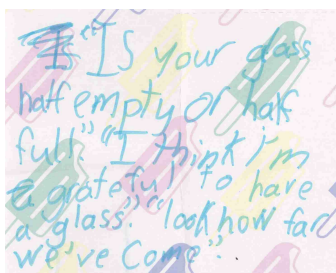 "Is your glass
half empty or half
full" "I think i'm
grateful to have
a glass." "look how far
we've come".